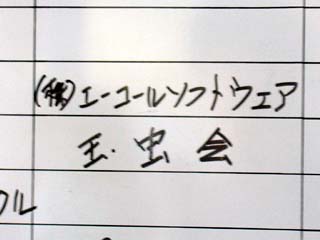 (株)エーコールソフトウェア
玉虫会
ル